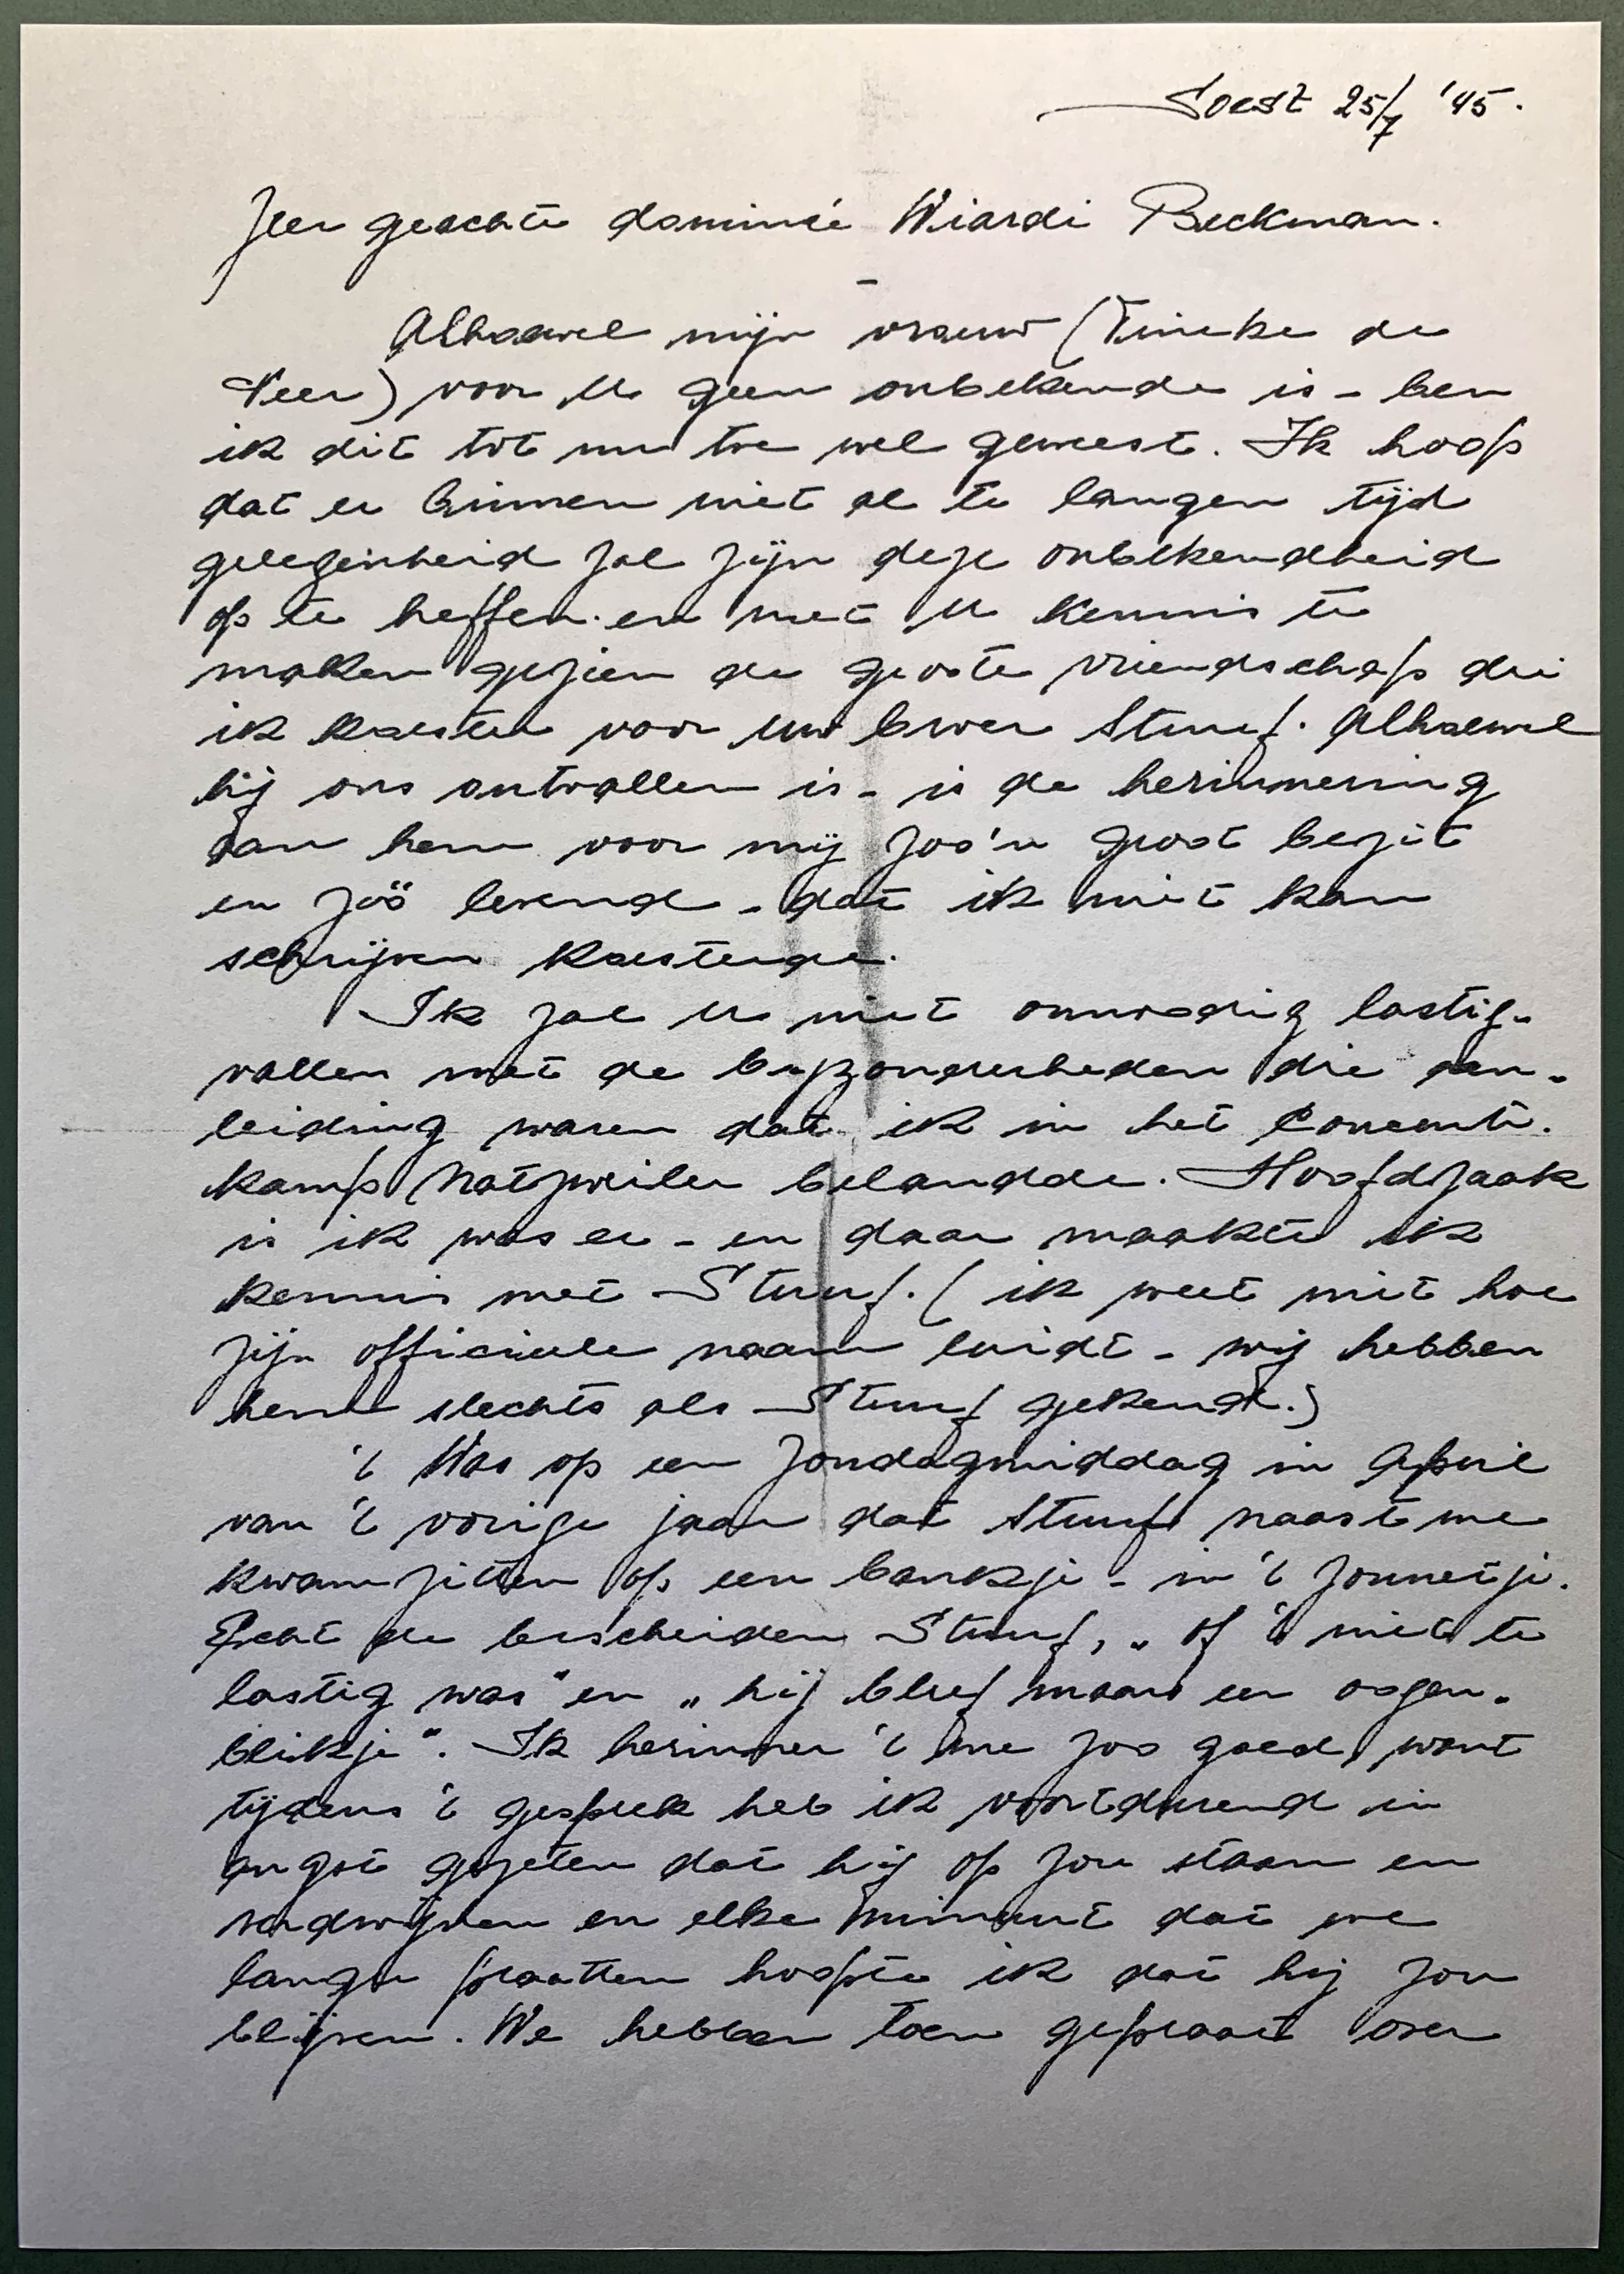 Soest 25/7 '45.
Zeer geachte dominée Wiardi Beckman.
Alhoewel mijn vrouw (Tineke de
Veer) voor U geen onbekende is - ben
ik dit tot nu toe wel geweest. Ik hoop
dat er binnen niet al te langen tijd
gelegenheid zal zijn deze onbekendheid
op te heffen en met U kennis te
maken gezien de groote vriendschap die
ik koester voor uw broer Stuuf. Alhoewel
hij ons ontvallen is - is de herinnering
aan hem voor mij zoo'n groot bezit
en zoo levend - dat ik niet kan
schrijven koesterde.
Ik zal U niet onnoodig lastig-
vallen met de byzonderheden die aan-
leiding waren dat ik in het Concentr.
kamp Natzweiler belandde. Hoofdzaak
is ik was er - en daar maakte ik
kennis met Stuuf. (ik weet niet hoe
zijn officieele naam luidt - wij hebben
hem slechts als Stuuf gekend.)
't Was op een Zondagmiddag in April
van 't vorige jaar dat Stuuf naast me
kwam zitten op een bankje - in 't zonnetje.
Echt de bescheiden Stuuf, „of 't niet te
lastig was" en „hij bleef maar een oogen-
blikje". Ik herinner 't me zoo goed, want
tijdens 't gesprek heb ik voortdurend in
angst gezeten dat hij op zou staan en
verdwijnen en elke minuut dat we
langer praatten hoopte ik dat hij zou
blijven. We hebben toen gepraat over